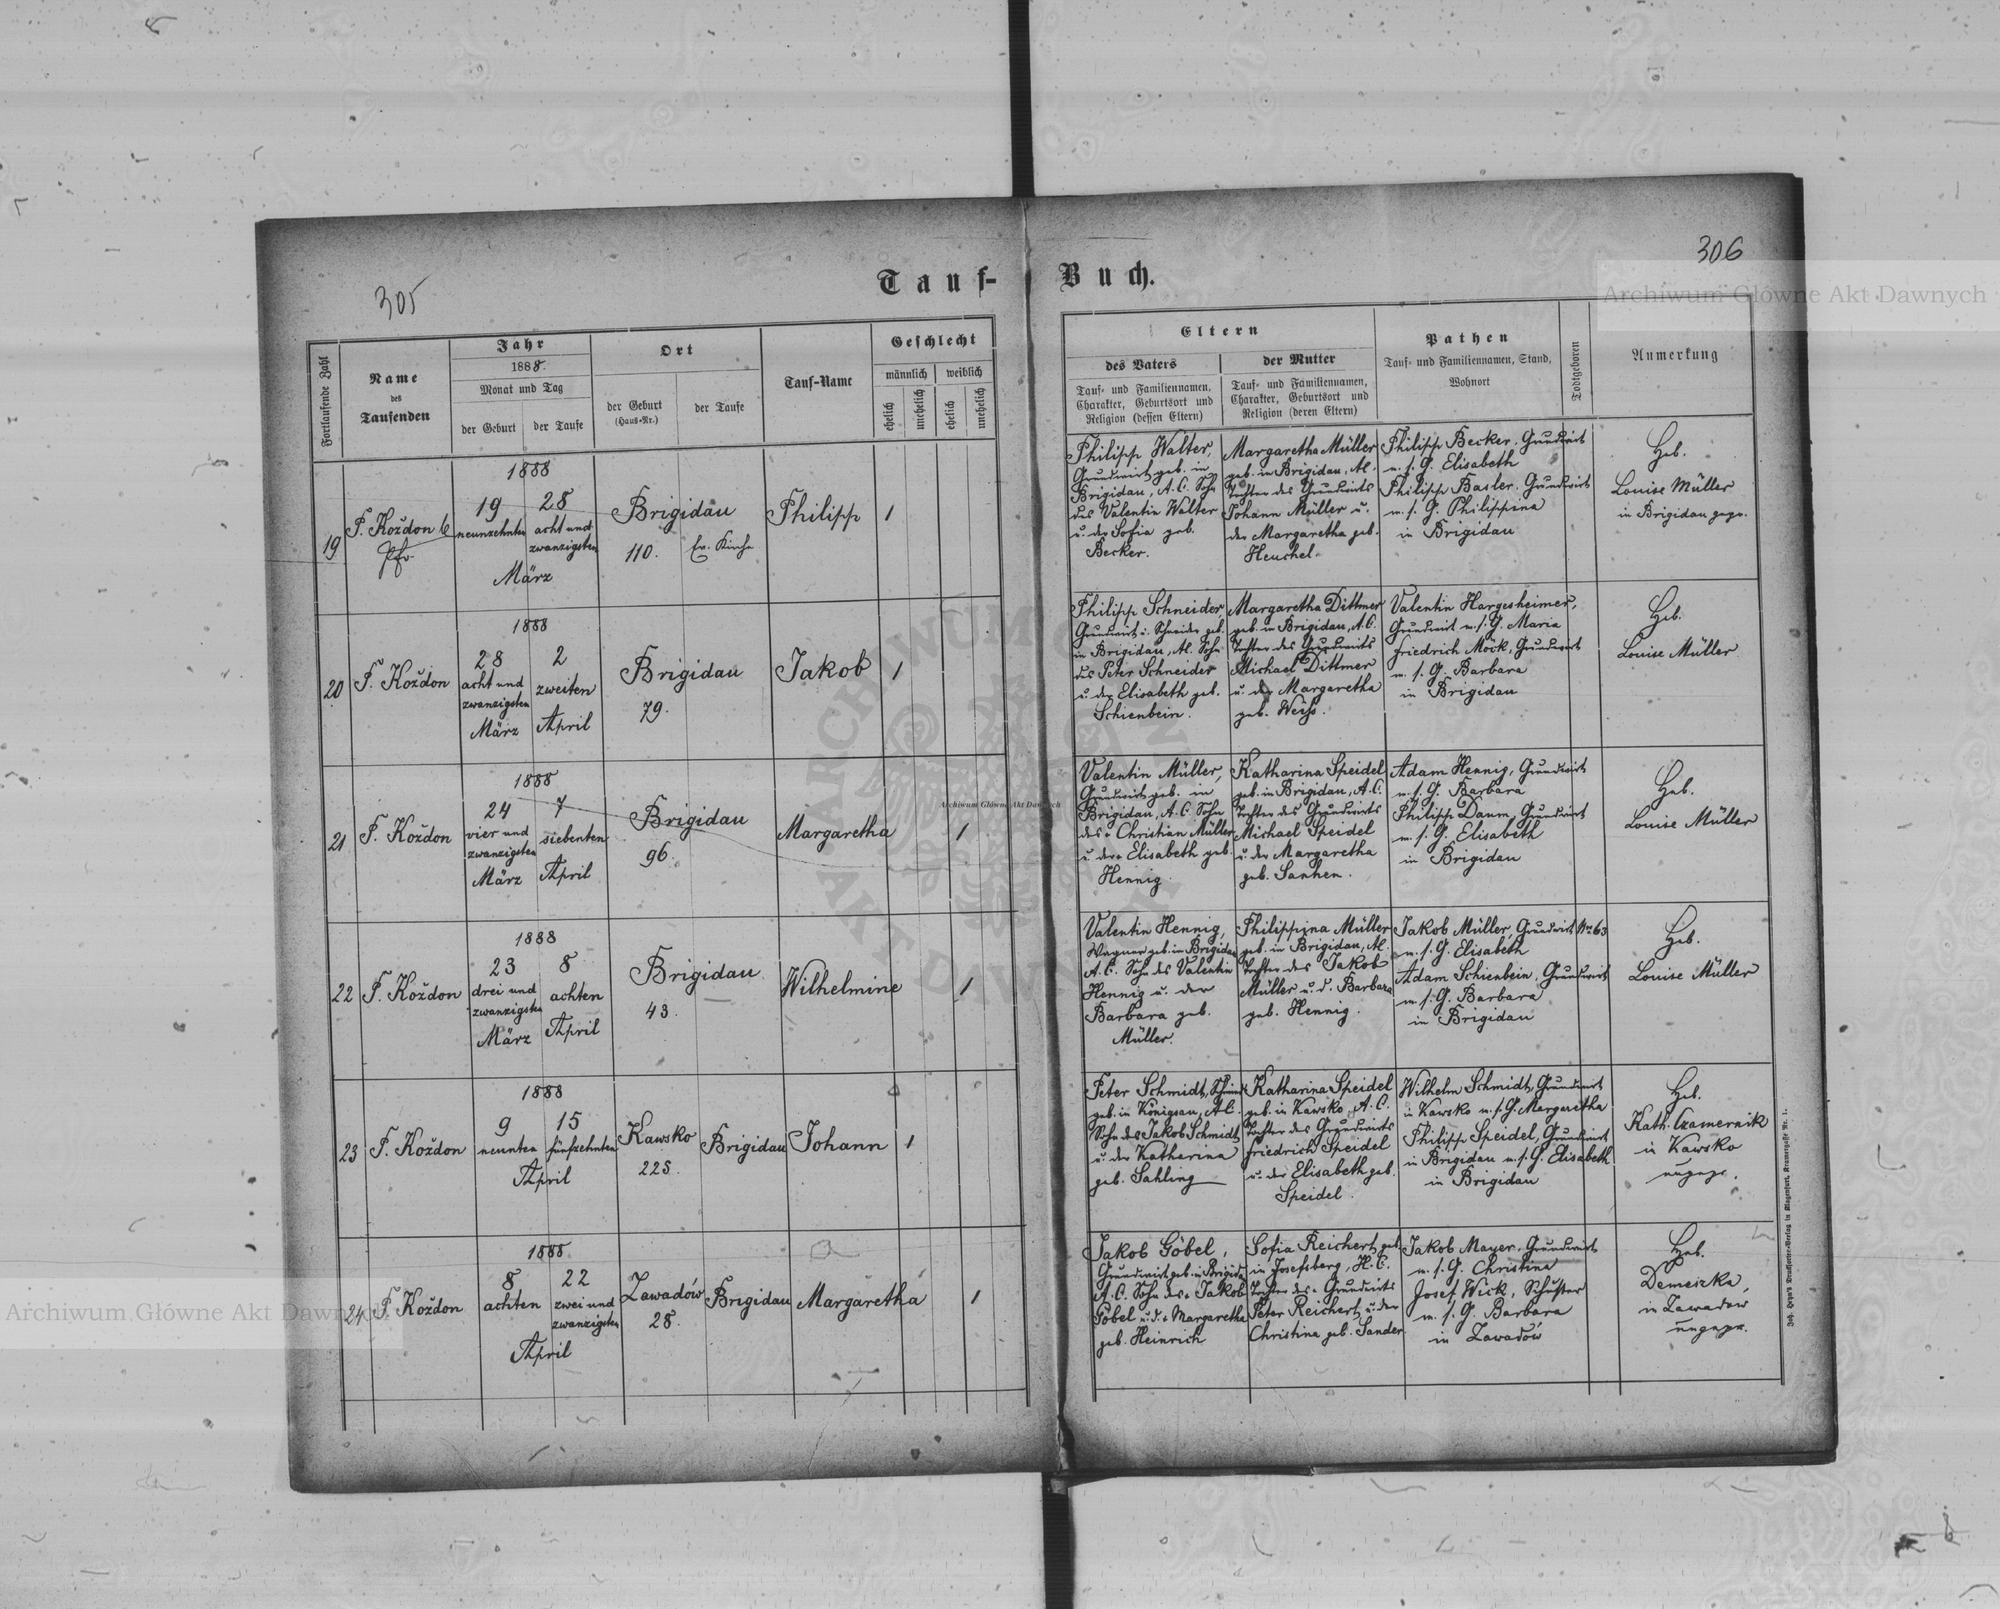 305
306
Tauf-Buch.
Fortlaufende Zahl
Name
des
Taufenden
Jahr
1888.
Monat und Tag
der Geburt
der Taufe
Ort
der Geburt
(Haus-Nr.)
der Taufe
Tauf-Name
Geschlecht
männlich
weiblich
ehelich
unehelich
ehelich
unehelich
Eltern
des Vaters
Tauf- und Familiennamen,
Charakter, Geburtsort und
Religion (dessen Eltern)
der Mutter
Tauf- und Familiennamen,
Charakter, Geburtsort und
Religion (deren Eltern)
Pathen
Tauf- und Familiennamen, Stand,
Wohnort
Todtgeboren
Anmerkung
19
F. Koždon
Pfr.
1888
19
neunzehnten
28
acht und
zwanzigsten
März
Brigidau
110.
Ev. Kirche
Philipp
1
Philipp Walter,
Grundwirt geb. in
Brigidau, A.C. Sohn
des Valentin Walter
u. der Sofia geb.
Becker.
Margaretha Müller
geb. in Brigidau, AC.
Tochter des Grundwirts
Johann Müller u.
der Margaretha geb.
Heuchel.
Philipp Becker, Grundwirt
m. s. G. Elisabeth
Philipp Basler, Grundwirt
m. s. G. Philippina
in Brigidau
Heb.
Louise Müller
in Brigidau gepr.
20
F. Koždon
1888
28
acht und
zwanzigsten
März
2
zweiten
April
Brigidau
79.
Jakob
1
Philipp Schneider
Grundwirt u. Schneider geb.
in Brigidau, AC. Sohn
des Peter Schneider
u. der Elisabeth geb.
Schienbein.
Margaretha Dittmer
geb. in Brigidau, A.C.
Tochter des Grundwirts
Michael Dittmer
u. der Margaretha
geb. Weiss.
Valentin Hargesheimer,
Grundwirt m. s. G. Maria
Friedrich Möck, Grundwirt
m. s. G. Barbara
in Brigidau
Heb.
Louise Müller
21
F. Koždon
1888
24
vier und
zwanzigsten
März
7
siebenten
April
Brigidau
96.
Margaretha
1
Valentin Müller,
Grundwirt geb. in
Brigidau, A.C. Sohn
des + Christian Müller
u. der + Elisabeth geb.
Hennig
Katharina Speidel
geb. in Brigidau, A.C.
Tochter des Grundwirts
Michael Speidel
u. der Margaretha
geb. Sanhen.
Adam Hennig, Grundwirt
m. s. G. Barbara
Philipp Daum, Grundwirt
m. s. G. Elisabeth
in Brigidau
Heb.
Louise Müller
22
F. Koždon
1888
23
drei und
zwanzigsten
März
8
achten
April
Brigidau
43.
Wilhelmine
1
Valentin Hennig,
Wagner geb. in Brigidau
A.C. Sohn des Valentin
Hennig u. der
Barbara geb.
Müller.
Philippina Müller
geb. in Brigidau, AC.
Tochter des Jakob
Müller u. d. Barbara
geb. Hennig.
Jakob Müller, Grundwirt Nr 63
m. s. G. Elisabeth
Adam Schienbein, Grundwirt
m. s. G. Barbara
in Brigidau
Heb.
Louise Müller
23
F. Koždon
1888
9
neunten
15
fünfzehnten
April
Kawsko
225.
Brigidau
Johann
1
Peter Schmidt,
geb. in Königsau, AC.
Sohn des Jakob Schmidt
u. der Katharina
geb. Sahling
Katharina Speidel
geb. in Kawsko, A.C.
Tochter des Grundwirts
Friedrich Speidel
u. der Elisabeth geb.
Speidel.
Wilhelm Schmidt, Grundwirt
in Kawsko m. s. G. Margaretha
Philipp Speidel, Grundwirt
in Brigidau m. s. G. Elisabeth
in Brigidau
Heb.
Kath. Czamernik
in Kawsko
ungepr.
24
F. Koždon
1888
8
achten
22
zwei und
zwanzigsten
April
Zawadów
28.
Brigidau
Margaretha
1
Jakob Göbel,
Grundwirt geb. in Brigidau
A.C. Sohn des + Jakob
Göbel u. d. + Margaretha
geb. Heinrich
Sofia Reichert, geb.
in Josefsberg, H.C.
Tochter des + Grundwirts
Peter Reichert, u. der
Christina geb. Sander
Jakob Mayer, Grundwirt
m. s. G. Christina
Josef Wick, Schuster
m. s. G. Barbara
in Zawadów
Heb.
Demeszka,
in Zawadów
ungepr.
Joh. Heyn's Drucksorten-Verlag in Klagenfurt, Kramergasse Nr. 1.
Archiwum Główne Akt Dawnych
Archiwum Główne Akt Dawnych
Archiwum Główne Akt Dawnych